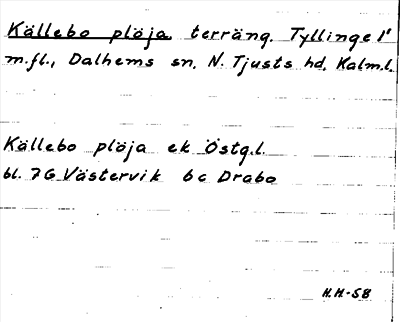 Källebo plöja terräng. Tyllinge 1¹
m.fl., Dalhems sn. N. Tjusts hd. Kalm.l.
Källebo plöja ek Östg.l.
bl. 7G Västervik 6c Drabo
H.H-58